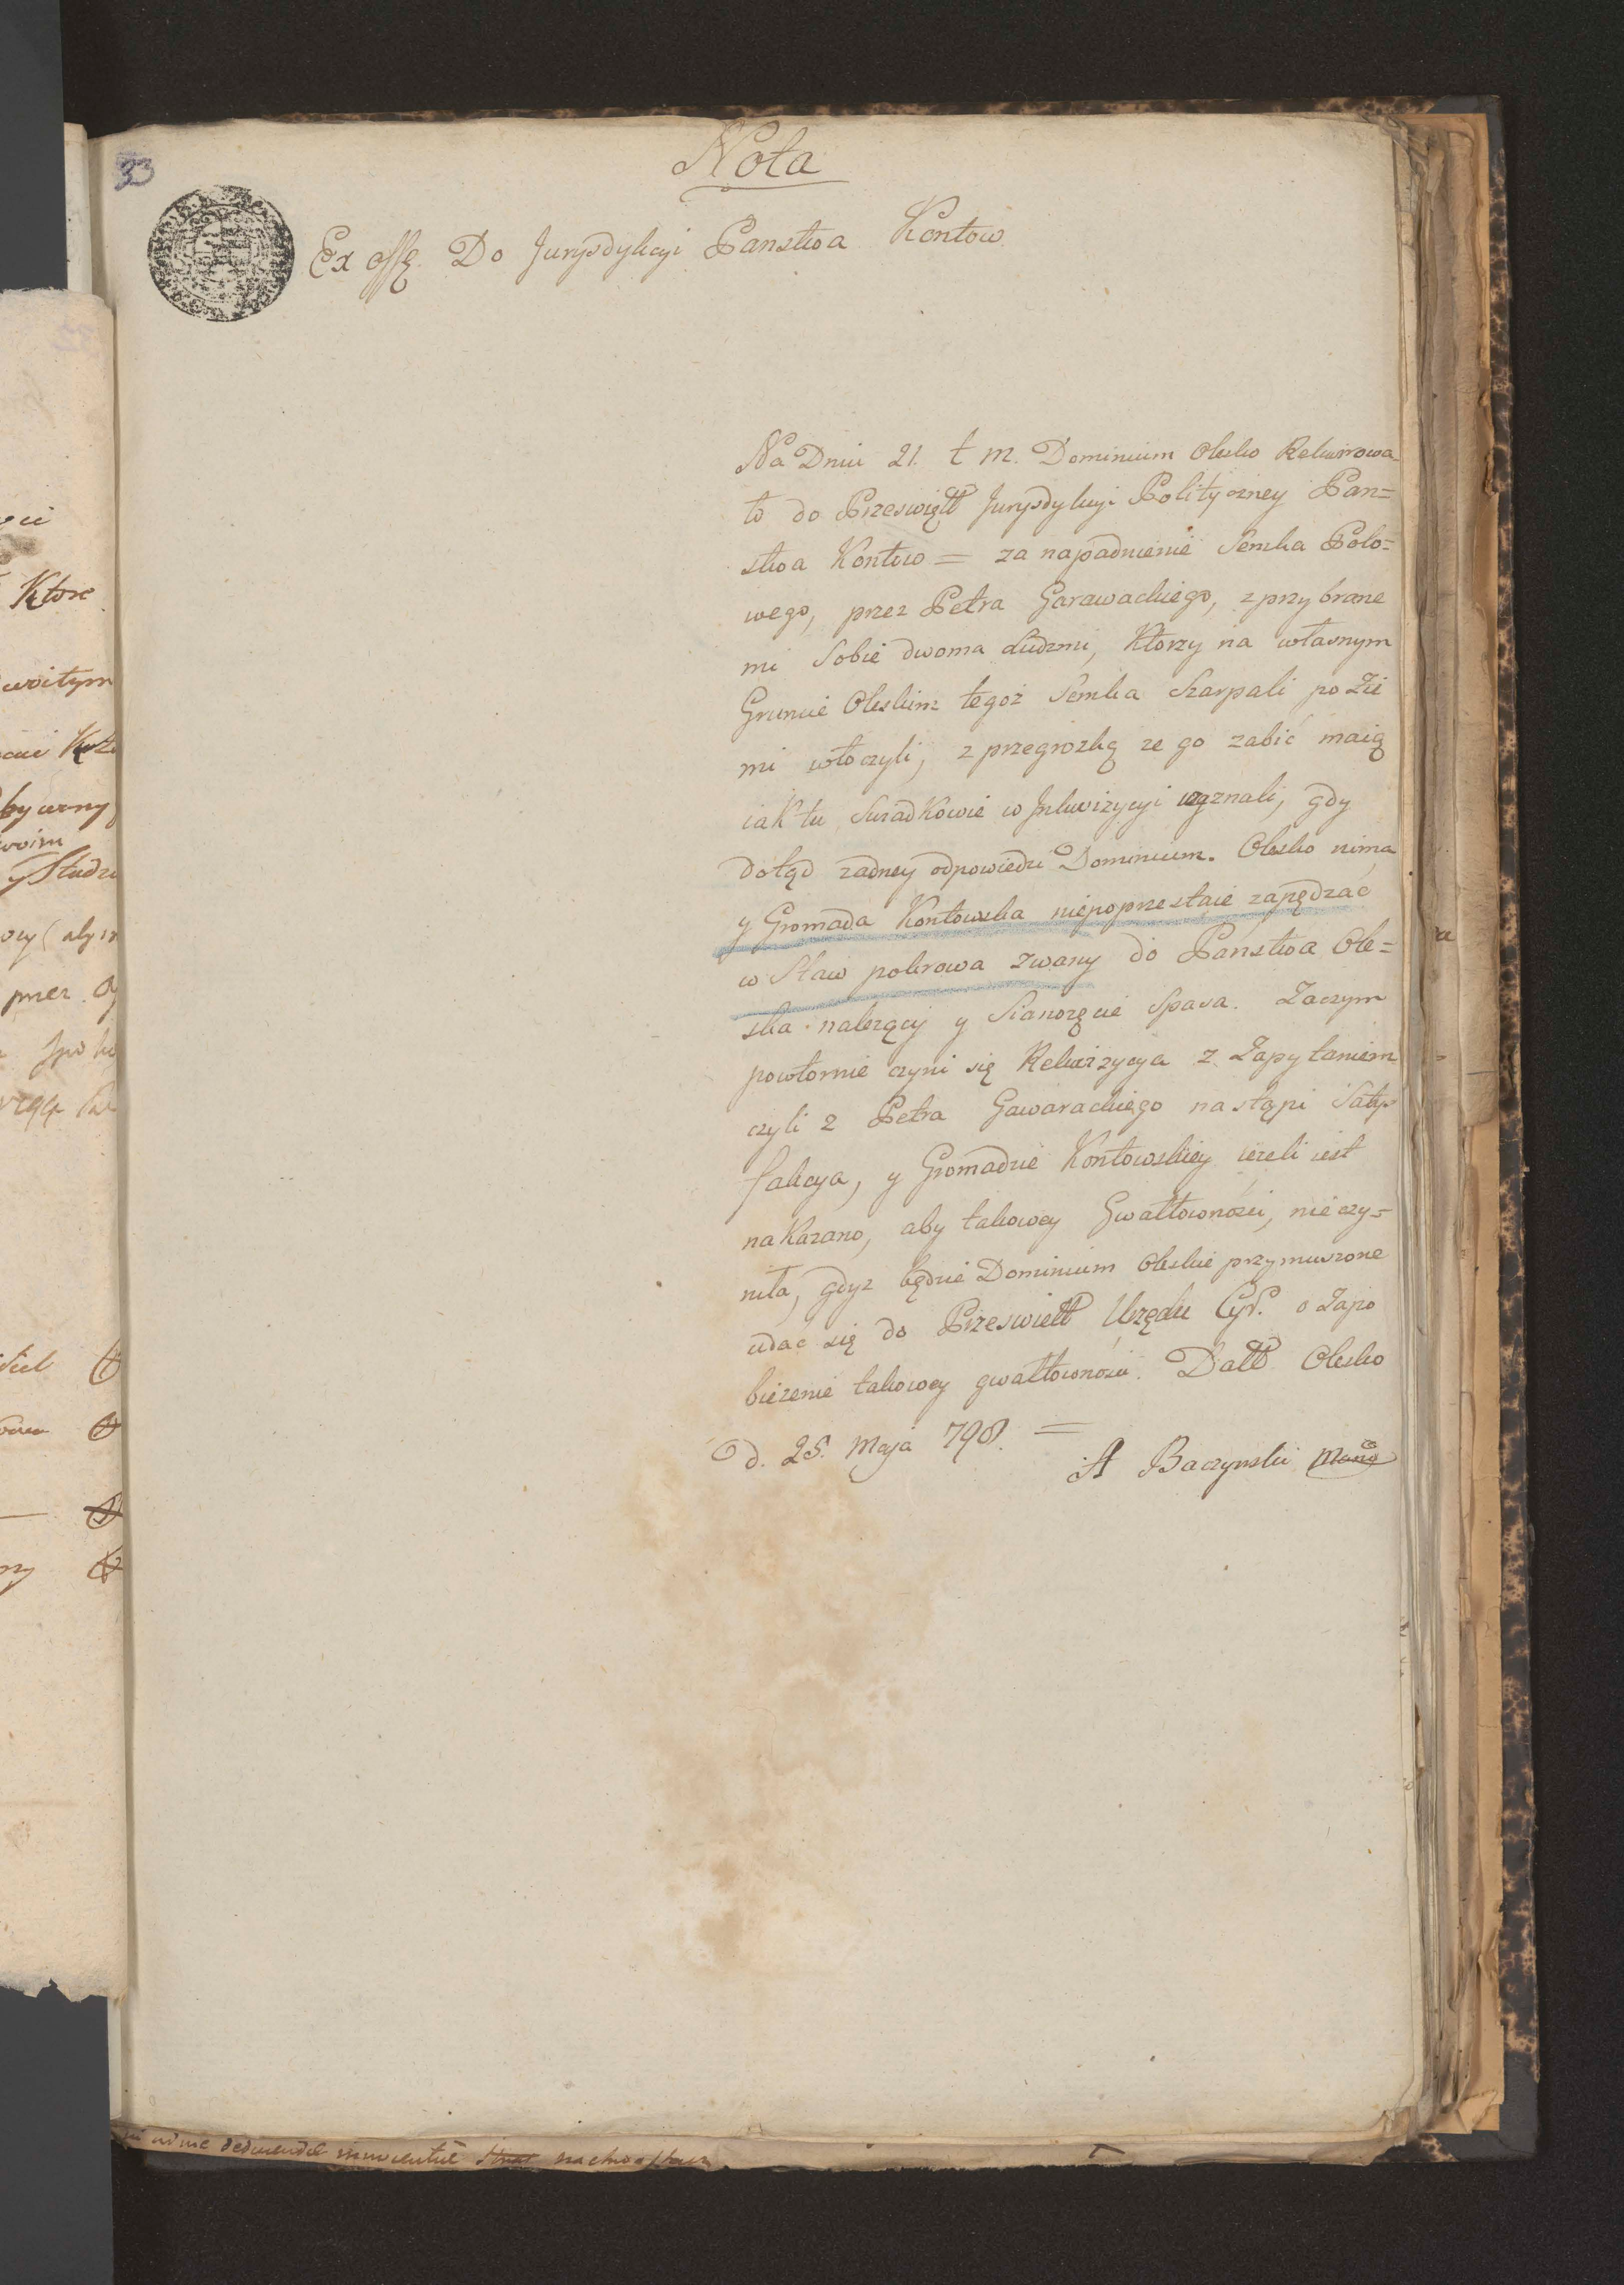 Nota
33
Ex offo Do Jurysdykcyi Panstwa Kontow
Na Dniu 21. t m. Dominium Olesko Rekwirowa-
ło do Przeswiętt Jurysdykcyi Polityczney Pan=
stwa Kontow = za napadnienie Semka Polo=
wego, przez Petra Garawackiego, z przybrane
mi Sobie dwoma Ludzmi, Ktorzy na własnym
Gruncie Oleskim tegoż Semka Szarpali po Zie
mi włoczyli, z przegrozką ze go zabić maią
iak tu Swiadkowie w Inkwizycyi wyznali, gdy
dotąd zadney odpowiedzi Dominium. Olesko nima
y Gromada Kontowska niepoprzestaie zapędzać
w Staw pokrowa zwany do Panstwa Ole=
ska nalezący y Sianozęcie Spasa. Zaczym
powtornie czyni się Rekwizycya z Zapytaniem
czyli z Petra Gawarackiego nastąpi Satys
fakcya, y Gromadzie Kontowskiey iezeli iest
nakazano, aby takowey Gwałtownosci, nie czy=
niła, gdyz będzie Dominium Oleskie przymuszone
udać się do Przeswiett Urzędu Cyr. o Zapo
bieżenie takowey gwałtownosci. Datt Olesko
d. 25. Maja 798. =
A Baczynski
Ktore
przez